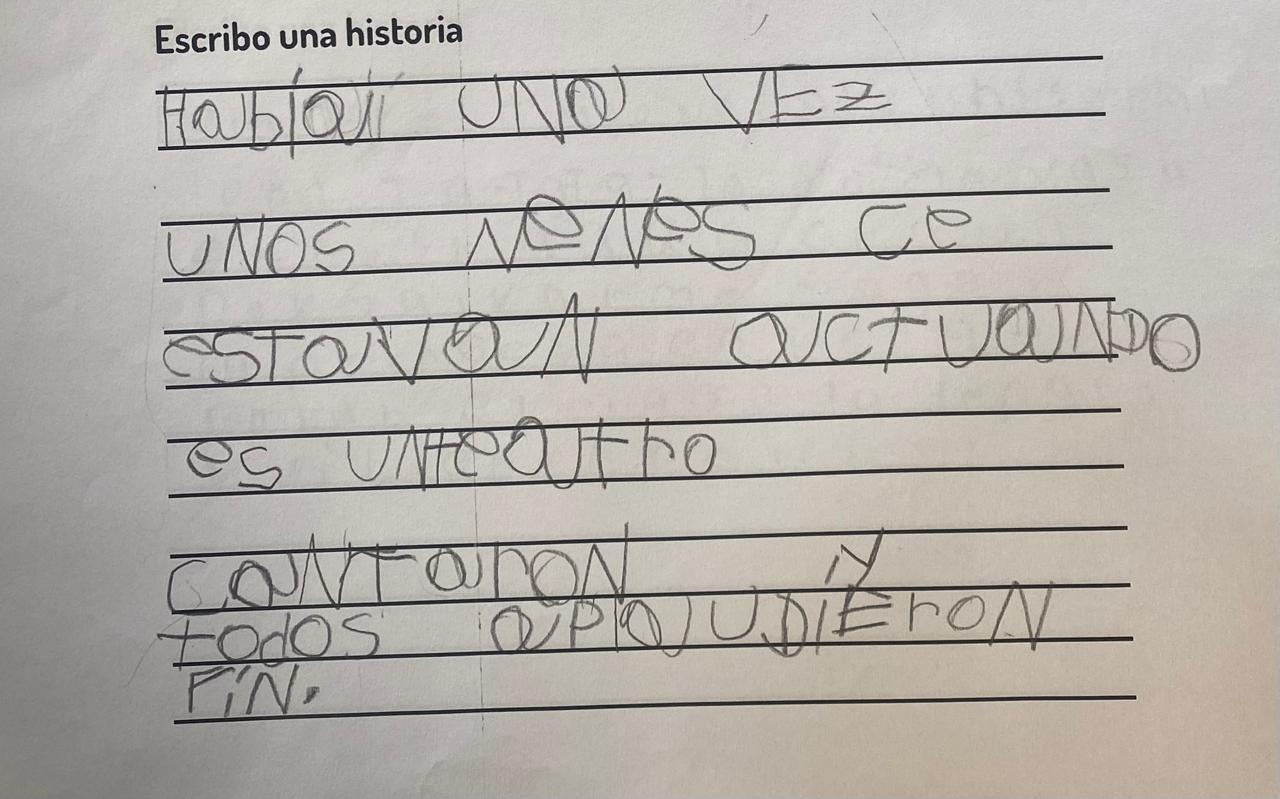 Escribo una historia
Había UNa VEz
UNOS NeNes ce
estaVaN actuaNDO
es UNteatro
caNTaroN y
todos aplaUDiEroN
FiN.